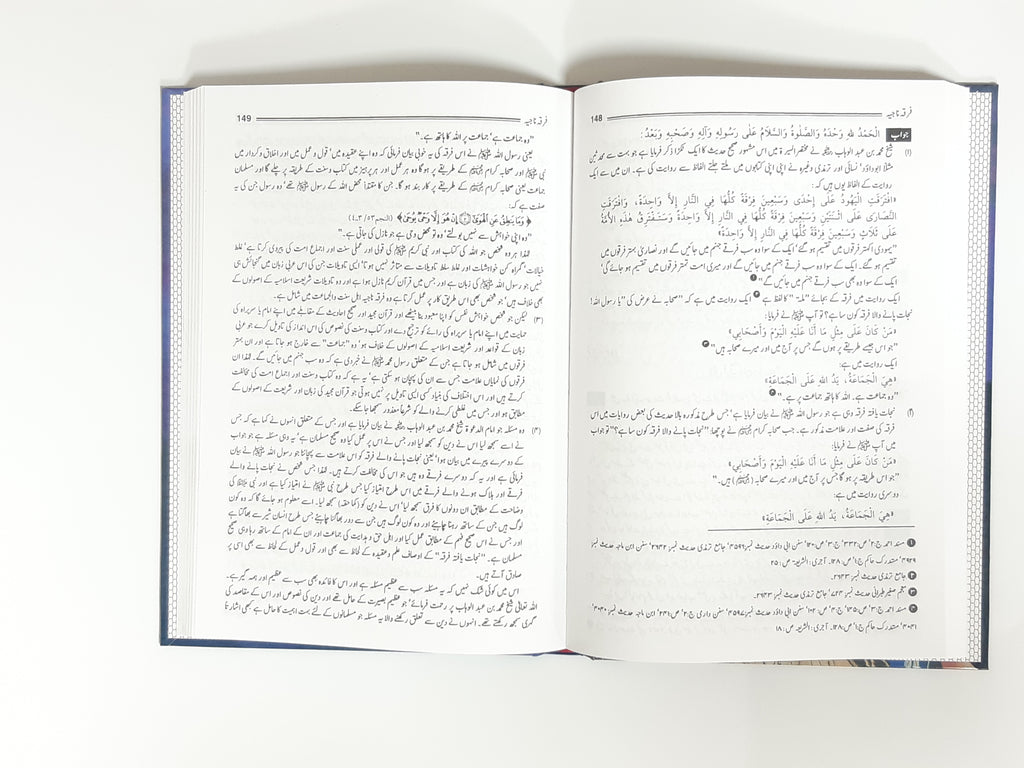 فرقہ ناجیہ 148
جواب اَلْحَمْدُ للهِ وَحْدَهُ وَالصَّلٰوةُ وَالسَّلَامُ عَلٰى رَسُولِهِ وَآلِهِ وَصَحْبِهِ وَبَعْدُ:
(ا) شیخ محمد بن عبد الوہاب نے مختصر السیرۃ میں اس مشہور صحیح حدیث کا ایک ٹکڑا ذکر فرمایا ہے جو بہت سے محدثین
مثلاً ابوداؤد، نسائی اور ترمذی وغیرہ نے اپنی اپنی کتابوں میں ملتے جلتے الفاظ سے روایت کی ہے۔ ان میں سے ایک
روایت کے الفاظ یوں ہیں کہ:
«اِفْتَرَقَتِ الْيَهُودُ عَلٰى إِحْدَى وَسَبْعِينَ فِرْقَةً كُلُّهَا فِي النَّارِ إِلَّا وَاحِدَةً، وَافْتَرَقَتِ
النَّصَارٰى عَلَى اثْنَتَيْنِ وَسَبْعِينَ فِرْقَةً كُلُّهَا فِي النَّارِ إِلَّا وَاحِدَةً وَسَتَفْتَرِقُ هٰذِهِ الْأُمَّةُ
عَلٰى ثَلَاثٍ وَسَبْعِينَ فِرْقَةً كُلُّهَا فِي النَّارِ إِلَّا وَاحِدَةً»
"یہودی اکہتر فرقوں میں تقسیم ہو گئے' ایک کے سوا وہ سب فرقے جہنم میں جائیں گے اور نصاریٰ بہتر فرقوں میں
تقسیم ہو گئے۔ ایک کے سوا وہ سب فرقے جہنم میں جائیں گے اور میری امت تہتر فرقوں میں تقسیم ہو جائے گی'
ایک کے سوا وہ بھی سب فرقے جہنم میں جائیں گے"
ایک روایت میں فرقہ کے بجائے "ملة" کا لفظ ہے ایک روایت میں ہے کہ "صحابہ نے عرض کی "یا رسول اللہ!
نجات پانے والا فرقہ کون سا ہے؟ تو آپ ﷺ نے فرمایا:
«مَنْ كَانَ عَلٰى مِثْلِ مَا أَنَا عَلَيْهِ الْيَوْمَ وَأَصْحَابِي»
"جو اس جیسے طریقے پر ہوں گے جس پر آج میں اور میرے صحابہ ہیں"
ایک روایت میں ہے:
«هِيَ الْجَمَاعَةُ، يَدُ اللهِ عَلَى الْجَمَاعَةِ»
"وہ جماعت ہے۔ اللہ کا ہاتھ جماعت پر ہے۔"
نجات یافتہ فرقہ وہی ہے جو رسول اللہ ﷺ نے بیان فرمایا ہے' جس طرح مذکورہ بالا حدیث کی بعض روایات میں اس
فرقہ کی صفت اور علامت مذکور ہے۔ جب صحابہ کرام نے پوچھا: "نجات پانے والا فرقہ کون سا ہے؟" تو جواب
میں آپ ﷺ نے فرمایا:
«مَنْ كَانَ عَلٰى مِثْلِ مَا أَنَا عَلَيْهِ الْيَوْمَ وَأَصْحَابِي»
"جو اس طریقہ پر ہو گا جس پر آج میں اور میرے صحابہ ہیں۔"
دوسری روایت میں ہے:
«هِيَ الْجَمَاعَةُ، يَدُ اللهِ عَلَى الْجَمَاعَةِ»
مسند احمد ج:۲' ص:۳۳۲' ج:۳' ص:۱۲۰' سنن ابی داؤد حدیث نمبر: ۴۵۹۶ جامع ترمذی حدیث نمبر: ۲۶۴۲ سنن ابن ماجہ حدیث نمبر:
۳۹۲۹' مستدرک حاکم ج:۱' ص:۱۲۸۔ آجری: الشریعہ ص:۲۵
جامع ترمذی حدیث نمبر: ۲۶۴۳
معجم صغیر طبرانی حدیث نمبر: ۷۲۴ جامع ترمذی حدیث نمبر: ۲۶۴۳۔
فرقہ ناجیہ 149
"وہ جماعت ہے' جماعت پر اللہ کا ہاتھ ہے۔"
یعنی رسول اللہ ﷺ نے اس فرقہ کی یہ خوبی بیان فرمائی کہ وہ اپنے عقیدہ میں' قول و عمل میں اور اخلاق و کردار میں
نبی ﷺ اور صحابہ کرام کے طریقے پر ہو گا وہ ہر عمل اور ہر پرہیز میں کتاب و سنت کے طریقہ پر چلے گا اور مسلمان
جماعت یعنی صحابہ کرام کے طریقے پر کاربند ہو گا۔ جن کا مقتدا محض اللہ کے رسول ﷺ تھے' وہ رسول جن کی یہ
صفت ہے کہ:
﴿وَمَا يَنطِقُ عَنِ الْهَوَىٰ إِنْ هُوَ إِلَّا وَحْيٌ يُوحَىٰ﴾ (النجم ۵۳/ ۳۔۴)
"وہ اپنی خواہش سے نہیں بولتے' وہ تو محض وحی ہے جو نازل کی جاتی ہے۔"
لہٰذا ہر وہ شخص جو اللہ کی کتاب اور نبی کریم ﷺ کی قولی اور عملی سنت اور اجماع امت کی پیروی کرتا ہے' غلط
خیالات' گمراہ کن خواہشات اور غلط سلط تاویلات سے متاثر نہیں ہوتا' ایسی تاویلات جن کی اس عربی زبان میں گنجائش ہی
نہیں جو رسول اللہ ﷺ کی زبان ہے اور جس میں قرآن کریم نازل ہوا ہے اور وہ تاویلات شریعت اسلامیہ کے اصولوں کے
بھی خلاف ہیں' جو شخص بھی اس طریق کار پر عمل کرتا ہے وہ فرقہ ناجیہ اہل سنت والجماعت میں شامل ہے۔
(۳) لیکن جو شخص خواہش نفس کو اپنا معبود بنا بیٹھے اور قرآن مجید اور صحیح احادیث کے مقابلے میں اپنے امام یا سربراہ کی
حمایت میں اپنے امام یا سربراہ کی رائے کو ترجیح دے اور کتاب و سنت کی نصوص کی اس انداز کی تاویل کرے جو عربی
زبان کے قواعد اور شریعت اسلامیہ کے اصولوں کے خلاف ہو' وہ "جماعت" سے خارج ہو جاتا ہے اور ان بہتر
فرقوں میں شامل ہو جاتا ہے جن کے متعلق رسول محمد ﷺ نے خبر دی ہے کہ وہ سب جہنم میں جائیں گے۔ لہٰذا ان
فرقوں کی نمایاں علامت جس سے ان کی پہچان ہو سکتی ہے' یہ ہے کہ وہ کتاب و سنت اور اجماع امت کی مخالفت
کرتے ہیں اور اس اختلاف کی بنیاد کسی ایسی تاویل پر نہیں ہوتی جو قرآن مجید کی زبان اور شریعت کے اصولوں کے
مطابق ہو اور جس میں غلطی کرنے والے کو شرعاً معذور سمجھا جا سکے۔
(۴) وہ مسئلہ جو امام الدعوۃ شیخ محمد بن عبد الوہاب نے بیان فرمایا ہے اور جس کے متعلق انہوں نے کہا ہے کہ جس
نے اسے سمجھ لیا اس نے دین کو سمجھ لیا اور جس نے اس پر عمل کیا وہ صحیح مسلمان ہے' یہ وہی مسئلہ ہے جو جواب
کے دوسرے پیرے میں بیان ہوا' یعنی نجات پانے والے فرقہ کو اس علامت سے پہچاننا جو رسول اللہ ﷺ نے بیان
فرمائی ہے اور یہ کہ دوسرے فرقے وہ ہیں جو اس کی مخالفت کرتے ہیں۔ لہٰذا جس شخص نے نجات پانے والے
فرقے اور ہلاک ہونے والے فرقے میں اس طرح امتیاز کیا جس طرح نبی ﷺ نے امتیاز کیا ہے
لوگ ہیں جن کے ساتھ رہنا چاہئے اور وہ کون لوگ ہیں جن سے دور بھاگنا چاہئے جس طرح انسان شیر سے بھاگتا ہے
اور جس نے اس صحیح فہم کے مطابق عمل کیا اور اہل حق و ہدایت کی جماعت اور ان کے امام کے ساتھ رہا وہی صحیح
مسلمان ہے۔ "نجات یافتہ فرقہ" کے اوصاف علم و عقیدہ کے لحاظ سے بھی اور قول و عمل کے لحاظ سے بھی اسی پر
صادق آتے ہیں۔
اس میں کوئی شک نہیں کہ یہ مسئلہ سب سے عظیم مسئلہ ہے اور اس کا فائدہ بھی سب سے عظیم اور ہمہ گیر ہے۔
اللہ تعالیٰ شیخ محمد بن عبد الوہاب پر رحمت فرمائے' جو عظیم بصیرت کے حامل تھے اور دین کی نصوص اور اس کے مقاصد کی
گہری سمجھ رکھتے تھے۔ انہوں نے دین سے تعلق رکھنے والا یہ مسئلہ جو مسلمانوں کے لئے بہت اہمیت کا حامل ہے کبھی اشارتاً